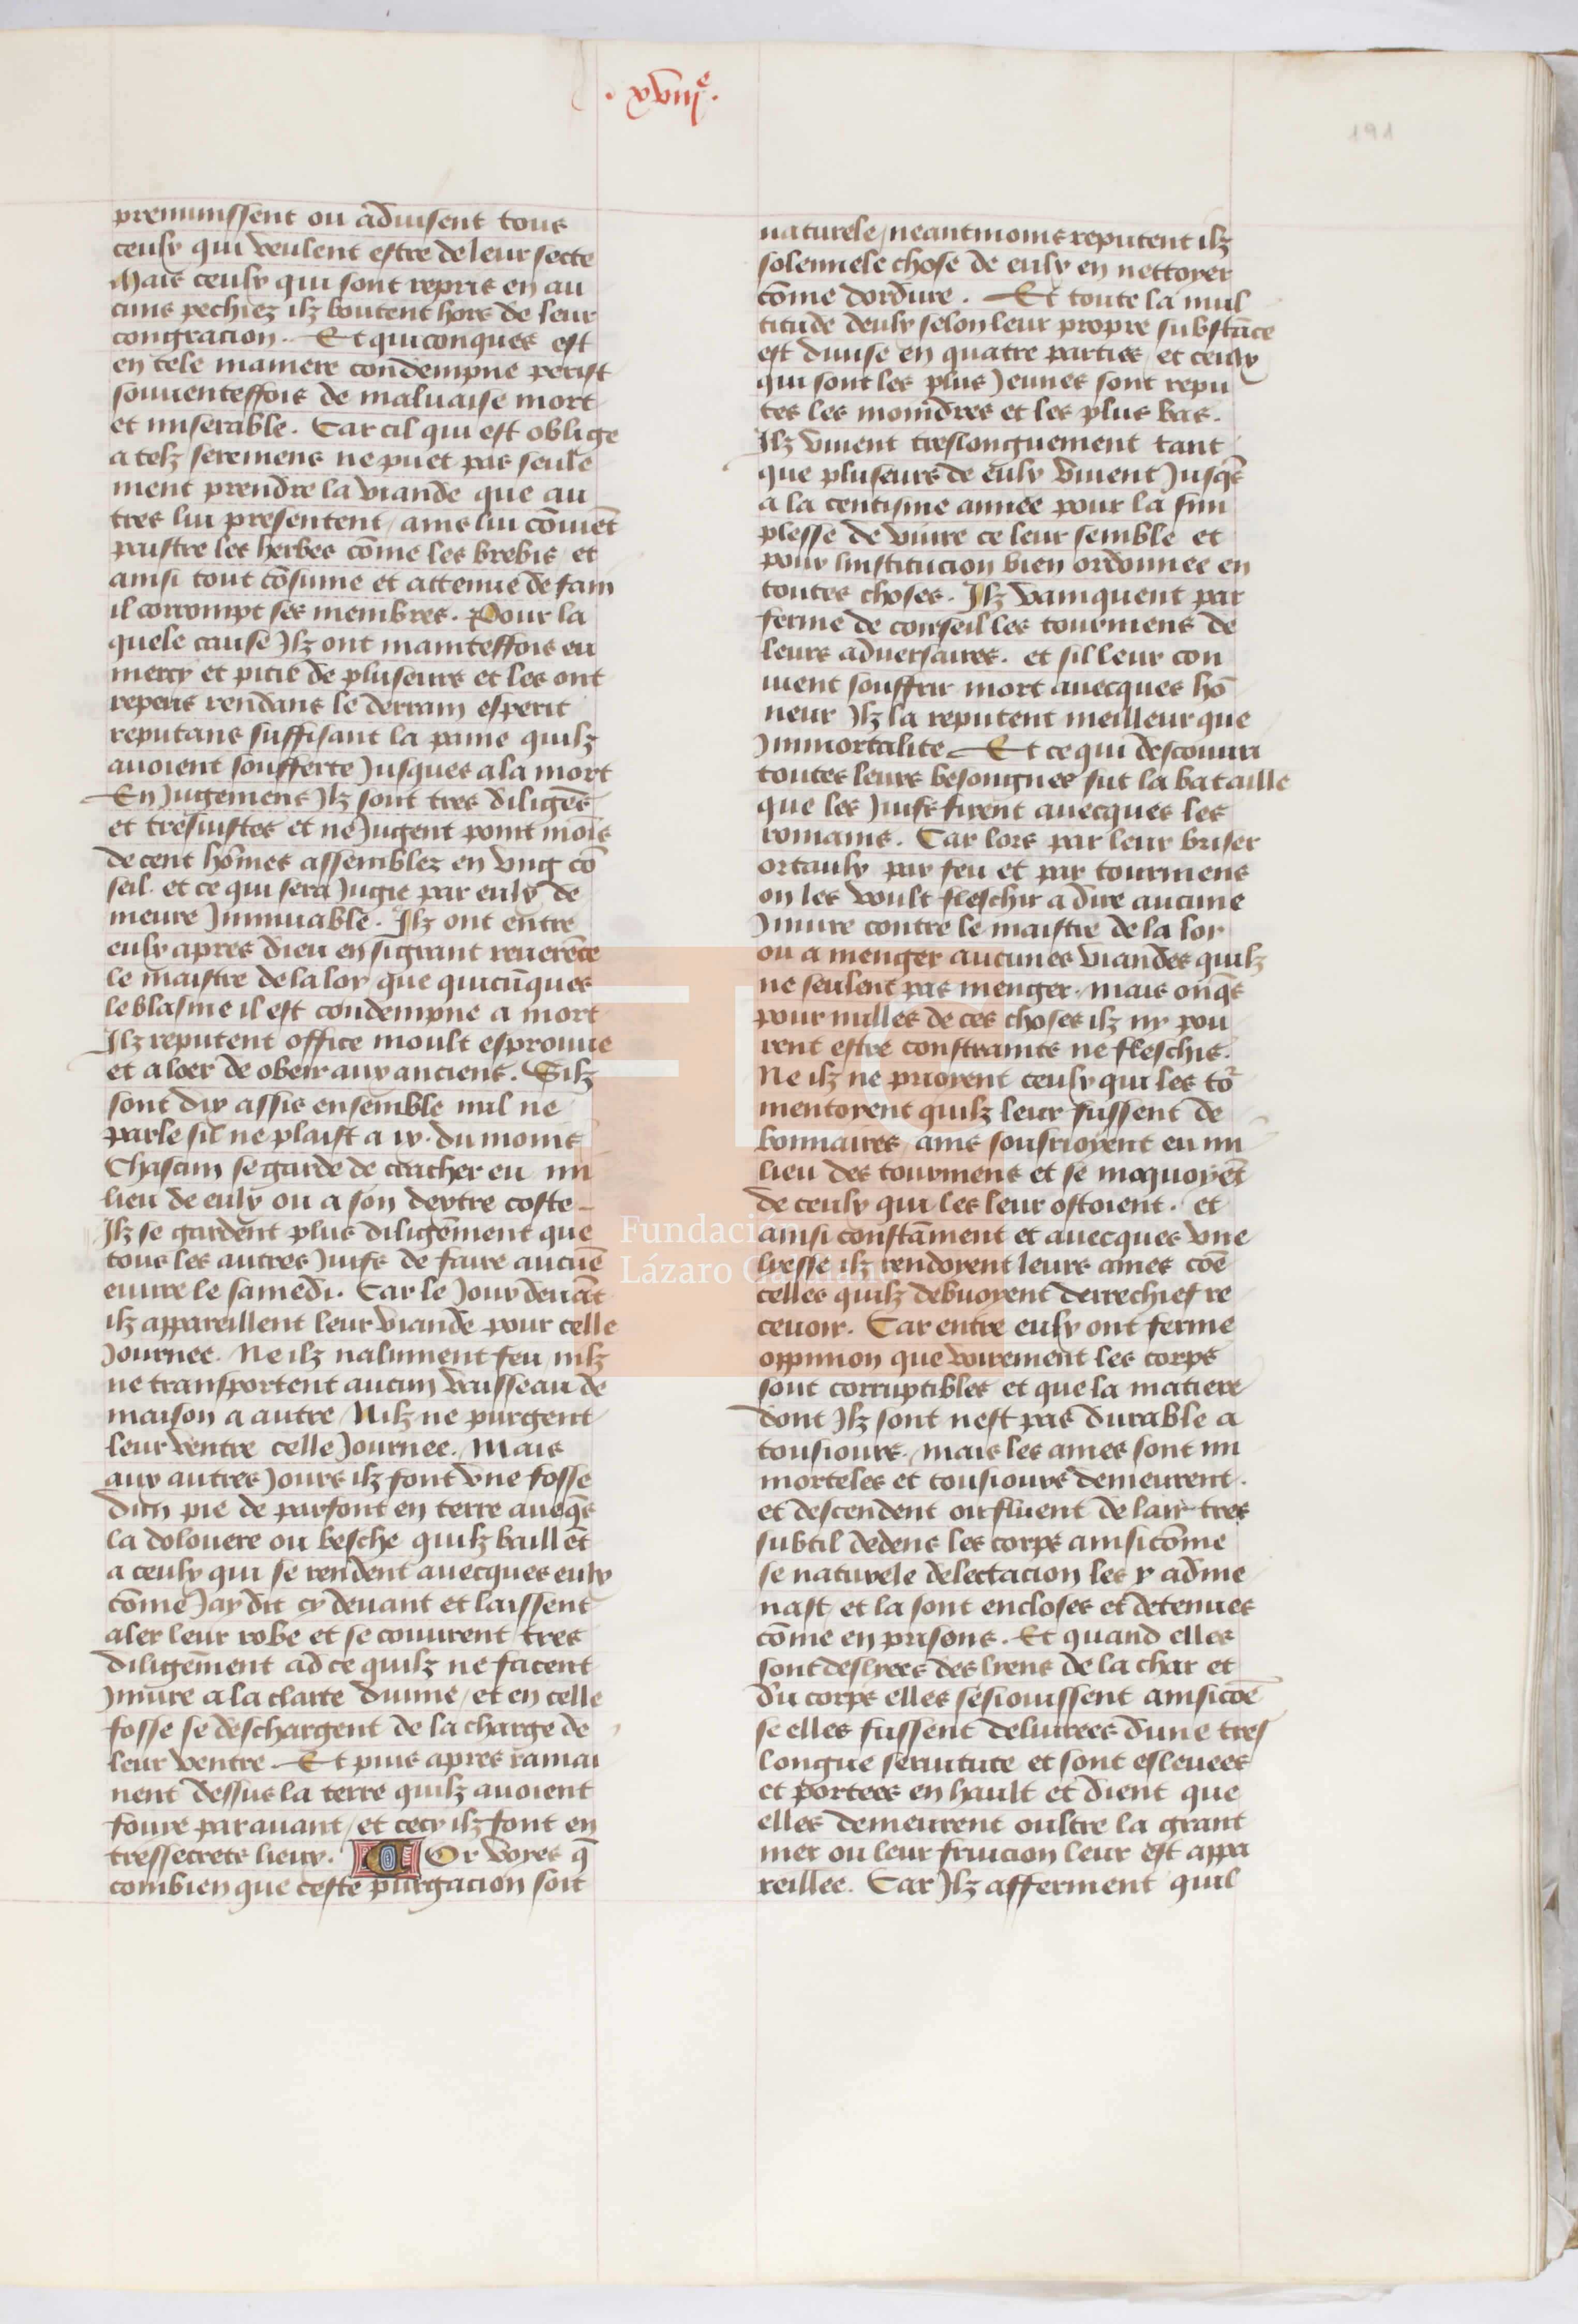 . xviiiͤ .
191
premunissent ou aduisent tous
ceulx qui veulent estre de leur secte
Mais ceulx qui sont repris en au
cuns pechiez ilz boutent hors de leur
congracion. Et quiconques est
en tele maniere condempne perist
souuenteffois de maluaise mort
et miserable. Car cil qui est oblige
a telz seremens ne puet pas seule
ment prendre la viande que au
tres lui presentent / ains lui cōuiēt
paistre les herbes cōme les brebis / et
ainsi tout cōsume et attenue de fain
il corrompt ses membres. Pour la
quele cause Ilz ont mainteffois eu
mercy et pitie de pluseurs et les ont
repris rendans le derrain esperit
reputans suffisant la paine quilz
auoient soufferte Jusques a la mort
En Jugemens Ilz sont tres diligēs
et tresiustes et ne Jugent point moīs
de cent hōmes assemblez en vng cō
seil. et ce qui sera Jugie par eulx de
meure Inmuable. Ilz ont entre
eulx apres dieu en si grant reuerēce
le maistre de la loy que quicūques
le blasme il est condempne a mort
Ilz reputent office moult esprouue
et a loer de obeir aux anciens. Silz
sont dix assis ensemble nul ne
parle sil ne plaist a ix. du moins
Chascun se garde de cracher en mi
lieu de eulx ou a son dextre coste
Ilz se gardent plus diligēment que
tous les autres Juifs de faire aucūe
euure le samedi. Car le Jour deuāt
ilz appareillent leur viande pour celle
Journee. Ne ilz nalument feu / nilz
ne transportent aucun vaisseau de
maison a autre / Nilz ne purgent
leur ventre celle Journee. Mais
aux autres Jours ilz font vne fosse
dun pie de parfont en terre aueq̄s
la dolouere ou besche quilz baillēt
a ceulx qui se rendent auecques eulx
cōme Jay dit cy deuant et laissent
aler leur robe et se couurent tres
diligēment ad ce quilz ne facent
Iniure a la clarte diuine / et en celle
fosse se deschargent de la charge de
leur ventre. Et puis apres ramai
nent dessus la terre quilz auoient
fouye parauant / et cecy ilz font en
tressecrets lieux. Or voyes q̄
combien que ceste purgacion soit
naturele / neantmoins reputent ilz
solennele chose de eulx en nettoyer
cōme dordure. Et toute la mul
titude deulx selon leur propre substāce
est diuise en quatre parties / et ceulx
qui sont les plus Jeunes sont repu
tes les moindres et les plus bas.
Ilz viuent treslonguement tant
que pluseurs de eulx viuent Jusq̄s
a la centisme annee pour la sim
plesse de viure ce leur semble et
pour linstitucion bien ordonnee en
toutes choses. Ilz vainquent par
ferme de conseil les tourmens de
leurs aduersaires. et sil leur con
uient souffrir mort auecques hō
neur Ilz la reputent meilleur que
Inmortalite. Et ce qui descouuri
toutes leurs besoingnes fut la bataille
que les Juifs firent auecques les
romains. Car lors par leur briser
ortaulx par feu et par tourmens
on les voult fleschir a dire aucune
Iniure contre le maistre de la loy
ou a menger aucunes viandes quilz
ne seulent pas menger. mais onq̄s
pour nulles de ces choses ilz ny pou
rent estre constrains ne fleschis.
Ne ilz ne prioyent ceulx qui les to͛
mentoyent quilz leur fussent de
bonnaires / ains sousrioyent en mi
lieu des tourmens et se moquoyēt
de ceulx qui les leur ostoient. et
ainsi constāment et auecques vne
lyesse ilz rendoyent leurs ames cōe
celles quilz debuoyent derrechief re
ceuoir. Car entre eulx ont ferme
oppinion que voirement les corps
sont corruptibles et que la matiere
dont Ilz sont nest pas durable a
tousiours. mais les ames sont im
morteles et tousiours demeurent.
et descendent ou fluent de lair tres
subtil dedens les corps ainsi cōme
se naturele delectacion les y adme
nast / et la sont encloses et detenues
cōme en prisons. Et quand elles
sont deslyees des lyens de la char et
du corps elles sesiouissent ainsi cōe
se elles fussent deliurees dune tres
longue seruitute et sont esleuees
et portees en hault et dient que
elles demeurent oultre la grant
mer ou leur fruicion leur est appa
reillee. Car Ilz afferment quil
FLG
Fundación
Lázaro Galdiano